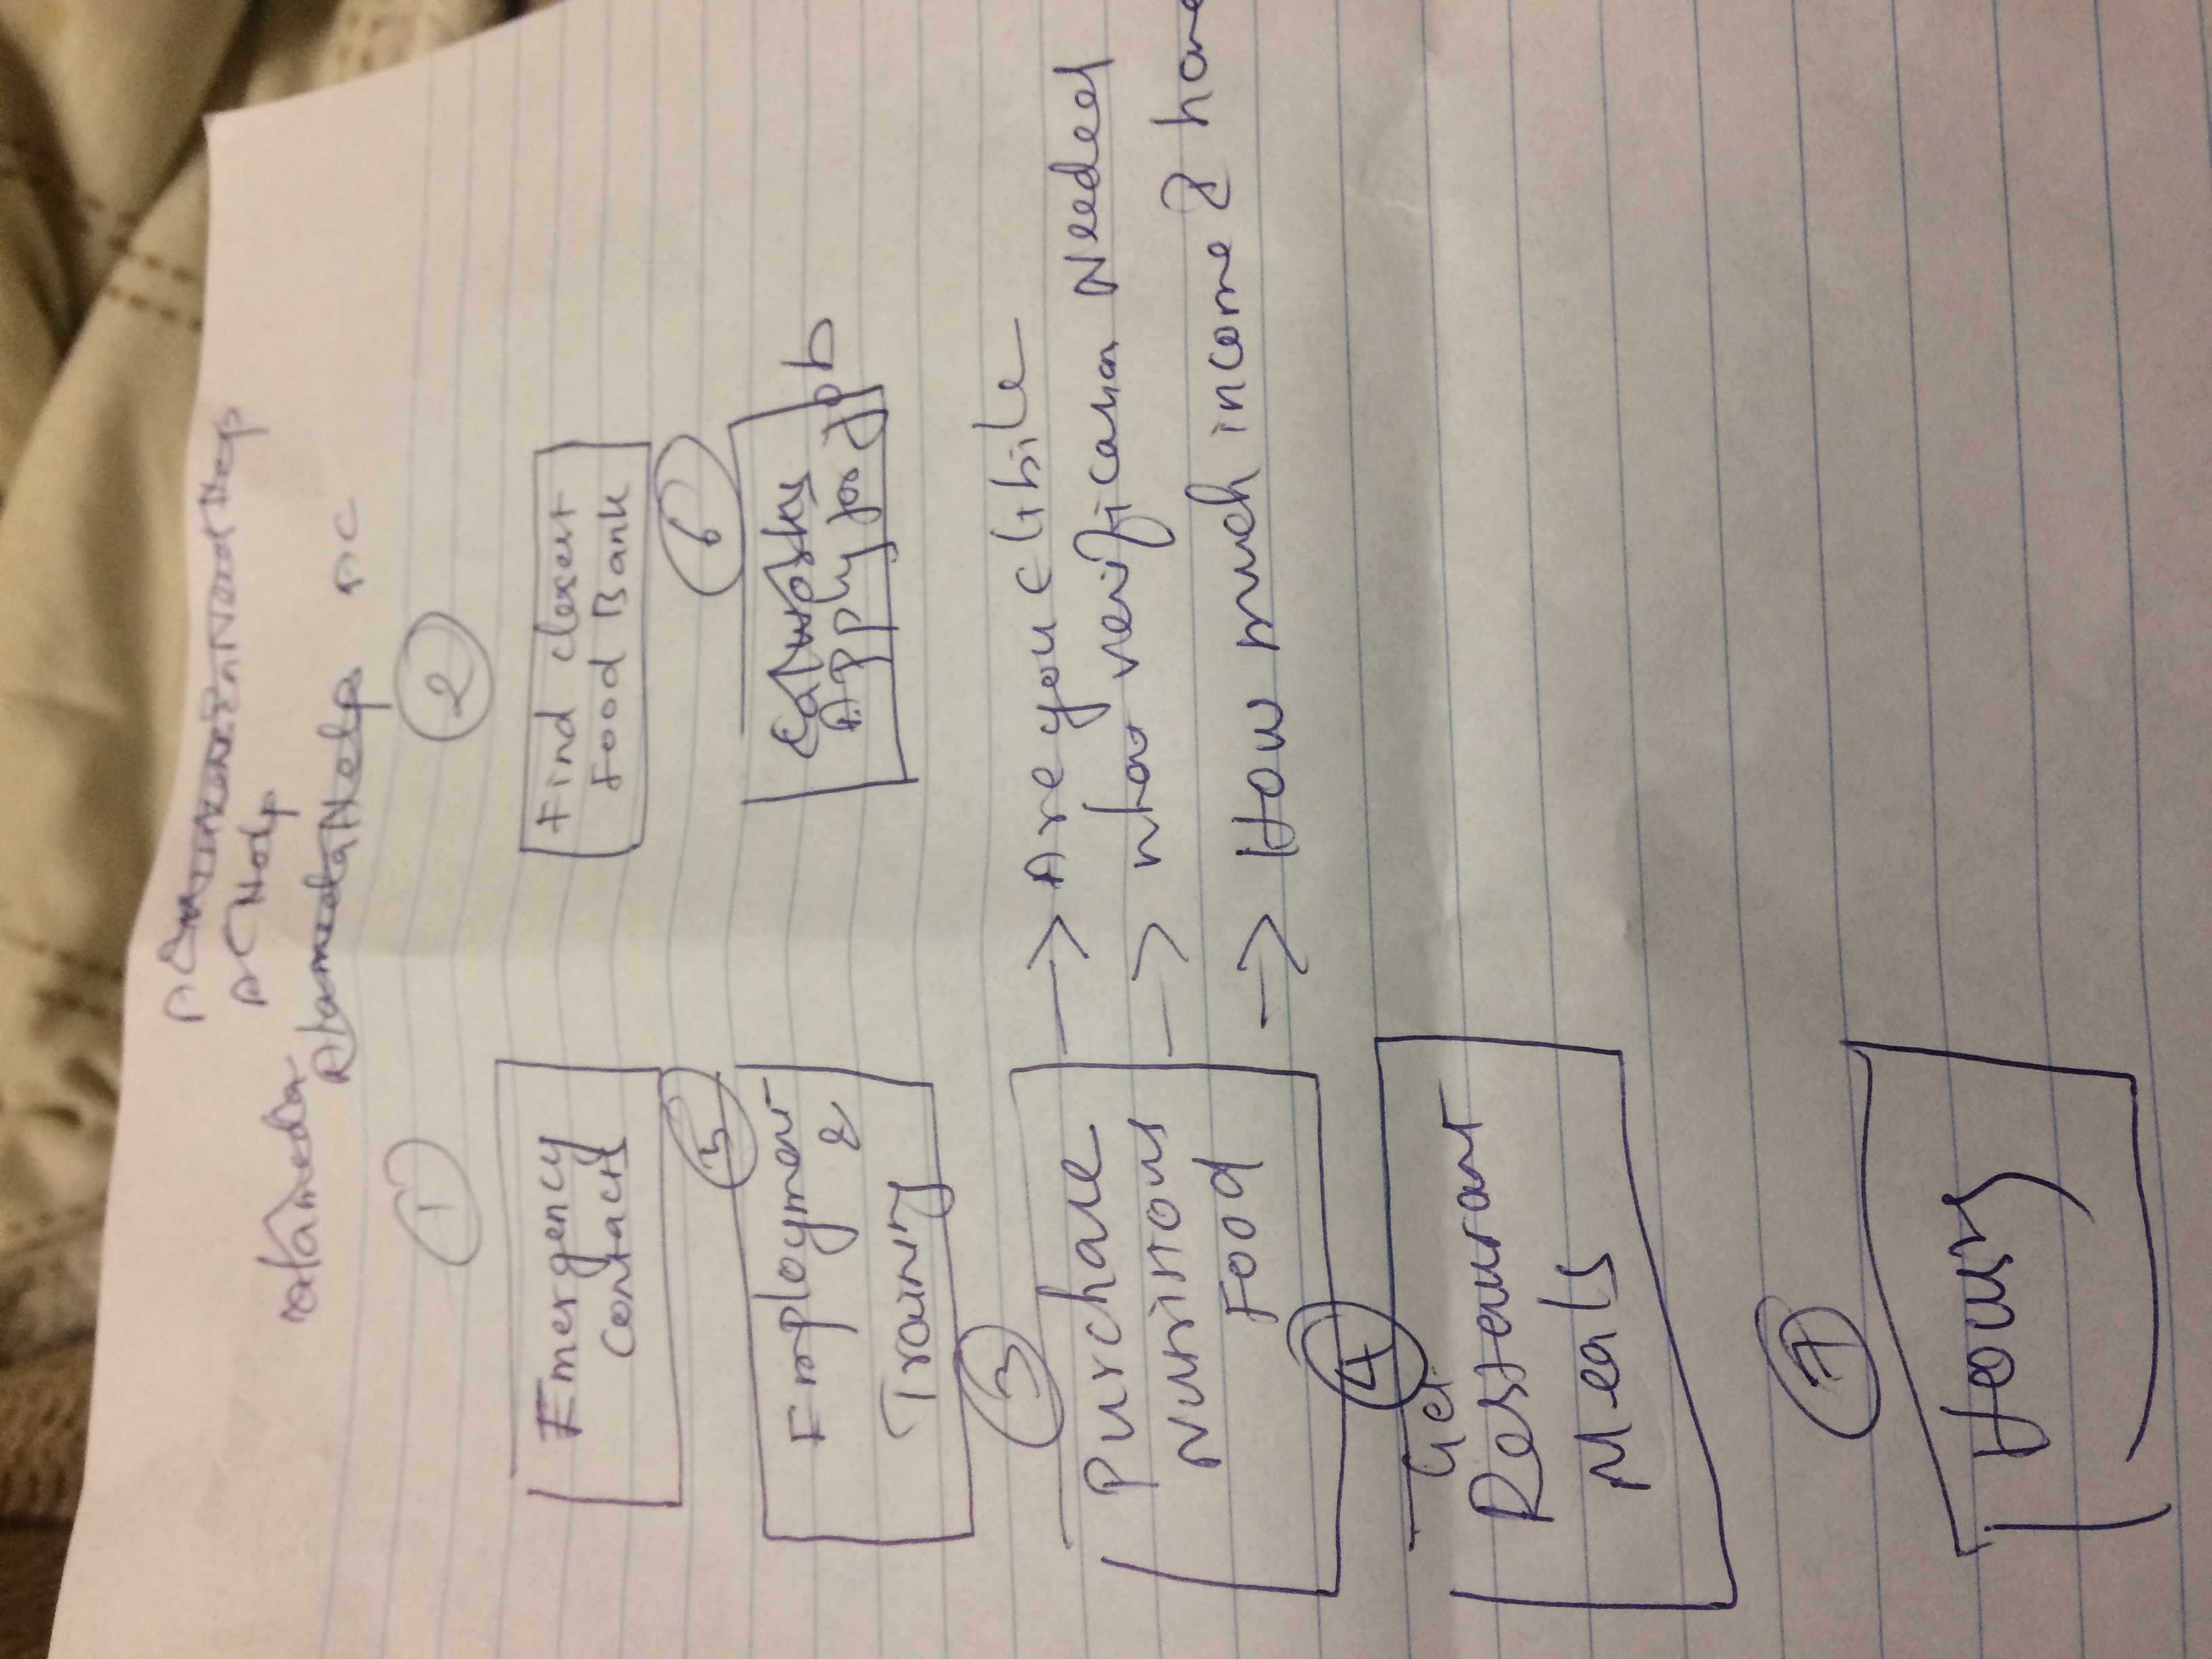 ACHelp
Alameda
AlamedaHelp AC
1
2
Emergency
Contacts
Find closest
Food Bank
5
6
Employment
&
Training
Calworks
Apply for job
3
Purchase
Nutritious
Food
→ Are you elibile
→ what verification Needed
→ How much income & have
4
Get
Restaurant
Meals
7
Housing